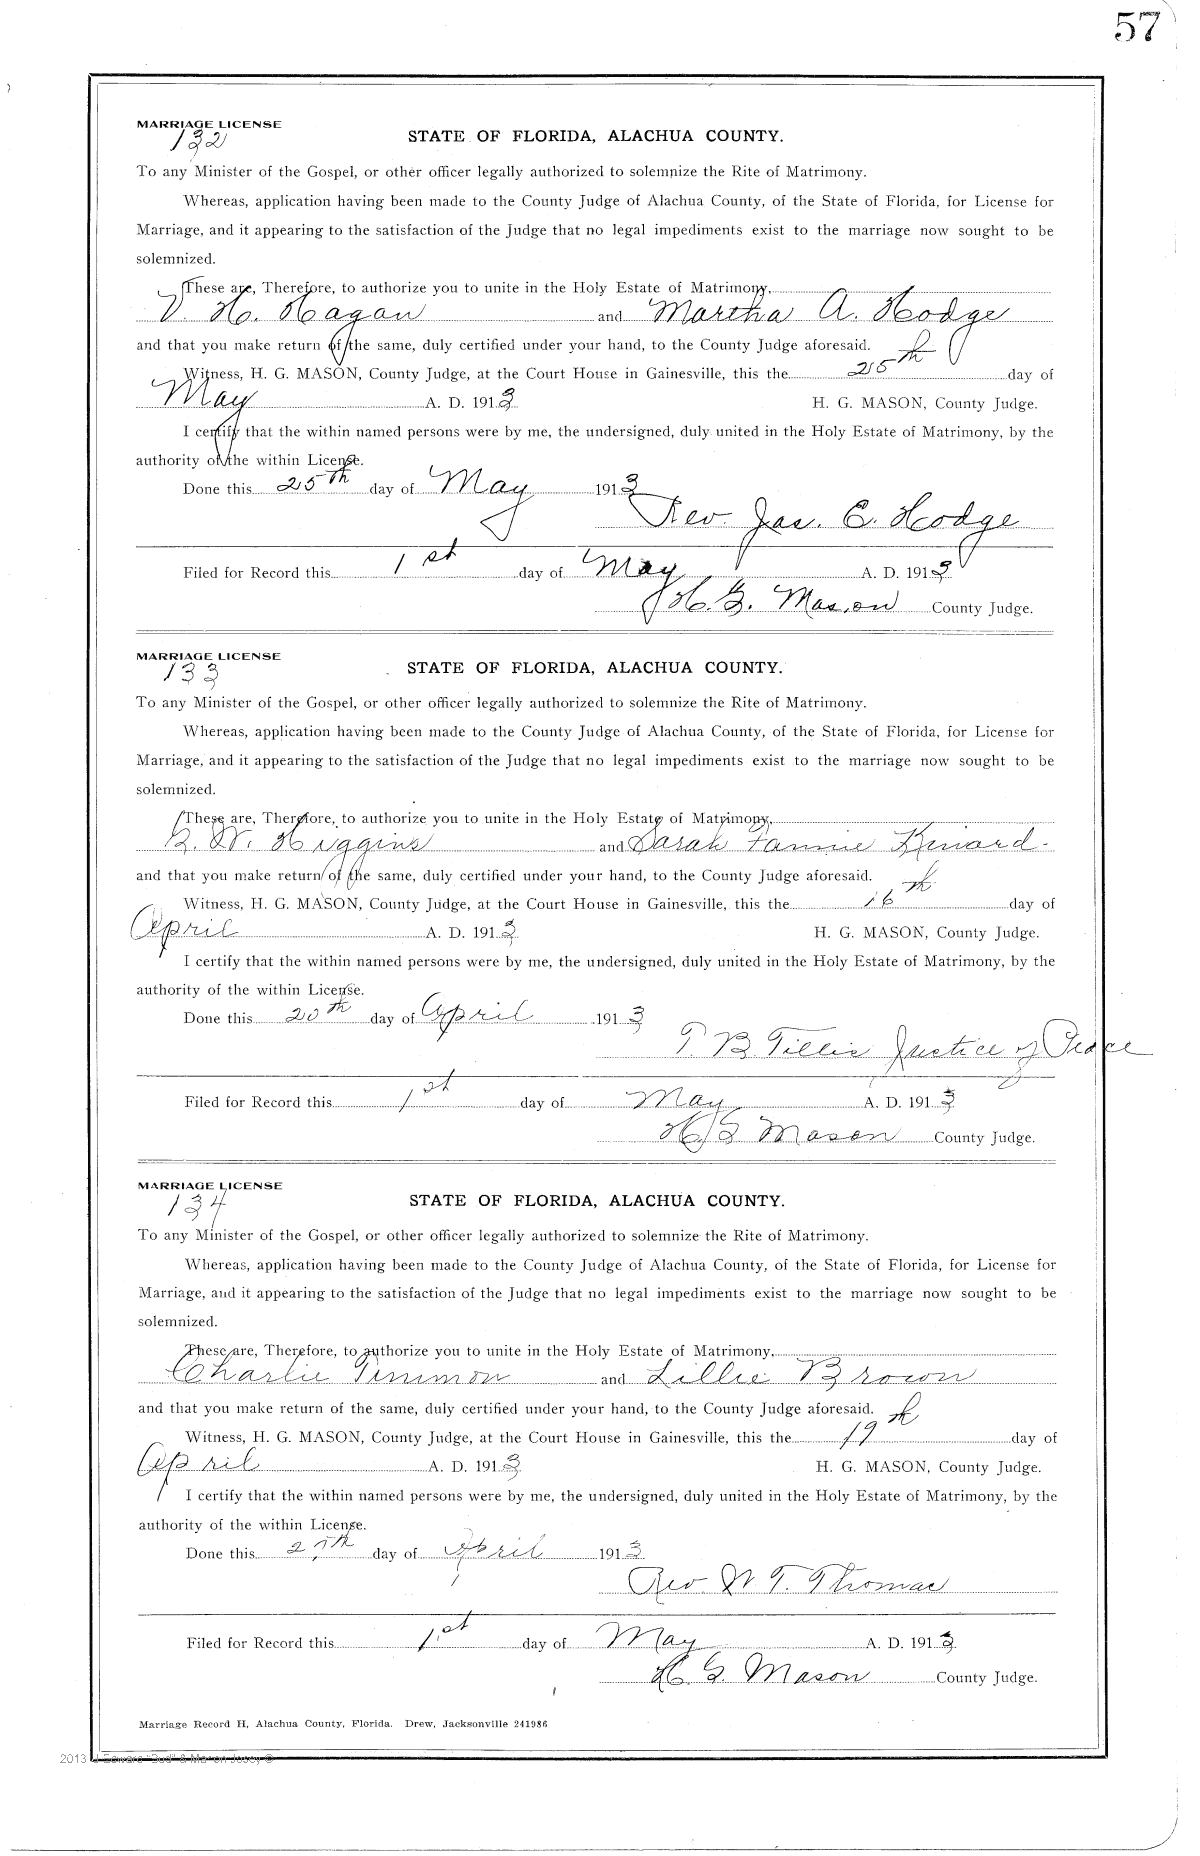 57
MARRIAGE LICENSE
132
STATE OF FLORIDA, ALACHUA COUNTY.
To any Minister of the Gospel, or other officer legally authorized to solemnize the Rite of Matrimony.
Whereas, application having been made to the County Judge of Alachua County, of the State of Florida, for License for
Marriage, and it appearing to the satisfaction of the Judge that no legal impediments exist to the marriage now sought to be
solemnized.
These are, Therefore, to authorize you to unite in the Holy Estate of Matrimony,
V. H. Hagan and Martha A. Hodge
and that you make return of the same, duly certified under your hand, to the County Judge aforesaid.
Witness, H. G. MASON, County Judge, at the Court House in Gainesville, this the 25th day of
May A. D. 1913 H. G. MASON, County Judge.
I certify that the within named persons were by me, the undersigned, duly united in the Holy Estate of Matrimony, by the
authority of the within License.
Done this 25th day of May 1913
Rev. Jas. E. Hodge
Filed for Record this 1st day of May A. D. 1913
H. G. Mason County Judge.
MARRIAGE LICENSE
133
STATE OF FLORIDA, ALACHUA COUNTY.
To any Minister of the Gospel, or other officer legally authorized to solemnize the Rite of Matrimony.
Whereas, application having been made to the County Judge of Alachua County, of the State of Florida, for License for
Marriage, and it appearing to the satisfaction of the Judge that no legal impediments exist to the marriage now sought to be
solemnized.
These are, Therefore, to authorize you to unite in the Holy Estate of Matrimony,
G. W. Higgins and Sarah Fannie Kinard
and that you make return of the same, duly certified under your hand, to the County Judge aforesaid.
Witness, H. G. MASON, County Judge, at the Court House in Gainesville, this the 16th day of
April A. D. 1913 H. G. MASON, County Judge.
I certify that the within named persons were by me, the undersigned, duly united in the Holy Estate of Matrimony, by the
authority of the within License.
Done this 20th day of April 1913
T. B. Tillis Justice of Peace
Filed for Record this 1st day of May A. D. 1913
H G Mason County Judge.
MARRIAGE LICENSE
134
STATE OF FLORIDA, ALACHUA COUNTY.
To any Minister of the Gospel, or other officer legally authorized to solemnize the Rite of Matrimony.
Whereas, application having been made to the County Judge of Alachua County, of the State of Florida, for License for
Marriage, and it appearing to the satisfaction of the Judge that no legal impediments exist to the marriage now sought to be
solemnized.
These are, Therefore, to authorize you to unite in the Holy Estate of Matrimony,
Charlie Timmon and Lillie Brown
and that you make return of the same, duly certified under your hand, to the County Judge aforesaid.
Witness, H. G. MASON, County Judge, at the Court House in Gainesville, this the 19th day of
April A. D. 1913 H. G. MASON, County Judge.
I certify that the within named persons were by me, the undersigned, duly united in the Holy Estate of Matrimony, by the
authority of the within License.
Done this day of April 1913
Rev. W T. Thomas
Filed for Record this 1st day of May A. D. 1913
H. G. Mason County Judge.
Marriage Record H, Alachua County, Florida. Drew, Jacksonville 241986
2013